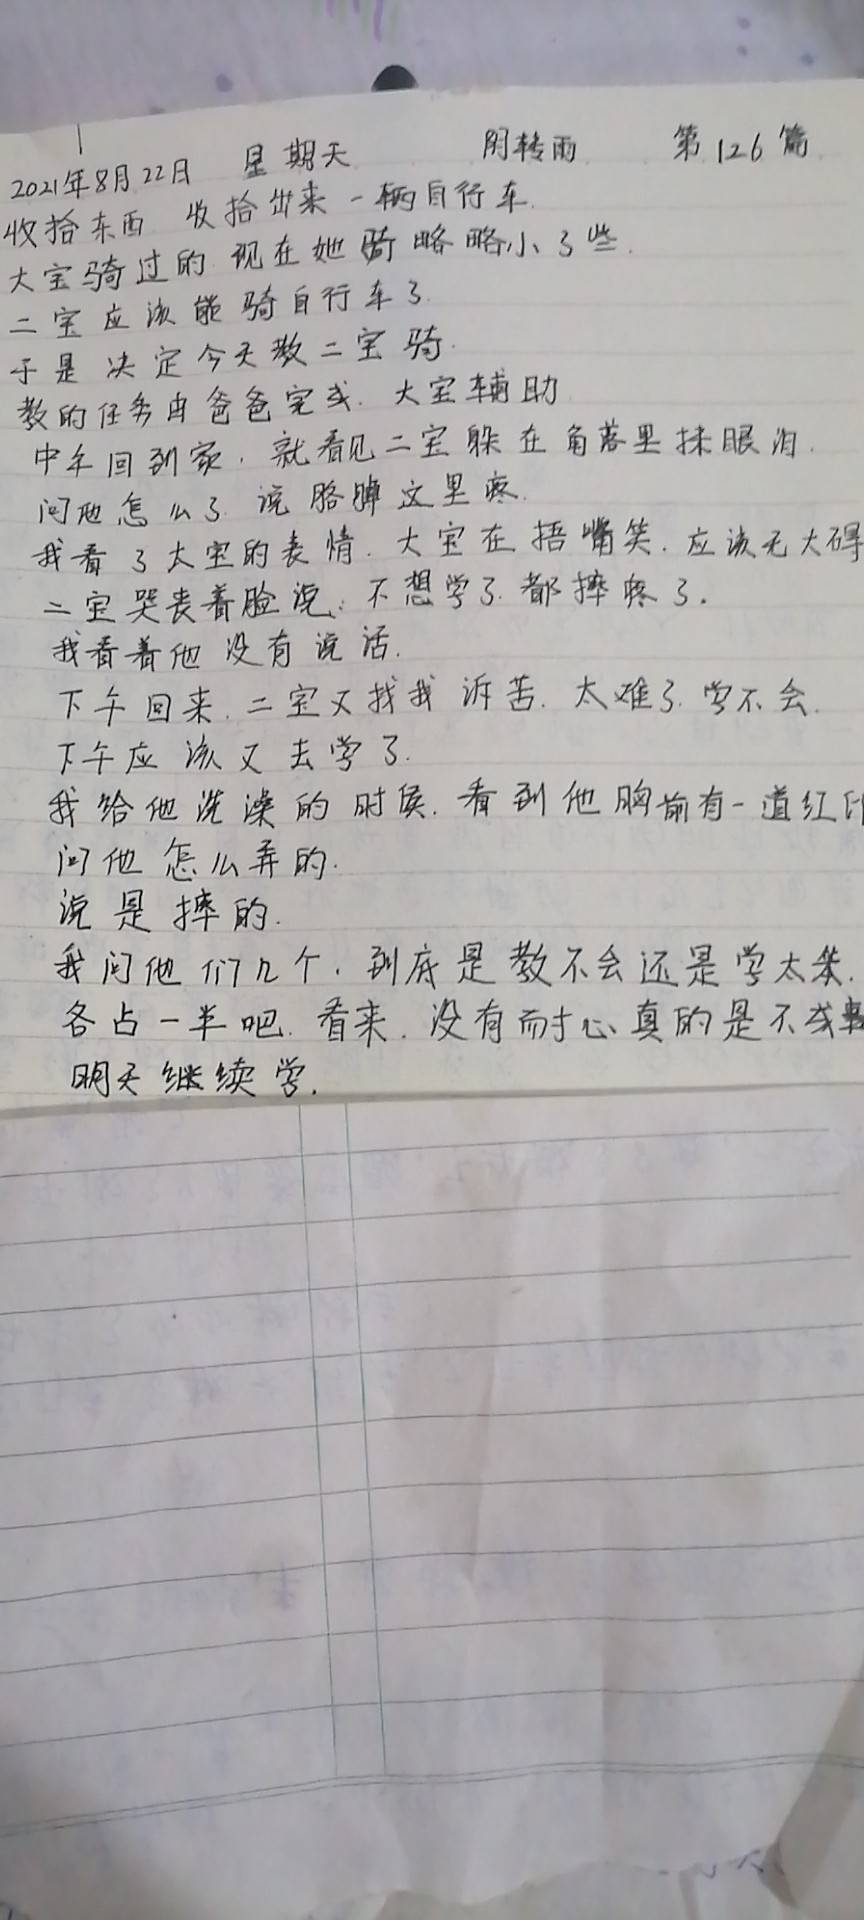 2021年8月22日 星期天 阴转雨 第126篇
收拾东西 收拾出来一辆自行车.
大宝骑过的 现在她骑略略小了些.
二宝应该能骑自行车了.
于是决定今天教二宝骑.
教的任务由爸爸完成. 大宝辅助
中午回到家. 就看见二宝躲在角落里抹眼泪.
问他怎么了. 说胳膊这里疼.
我看了大宝的表情. 大宝在捂嘴笑. 应该无大碍
二宝哭丧着脸说: 不想学了. 都摔疼了.
我看着他没有说话.
下午回来. 二宝又找我诉苦. 太难了. 学不会.
下午应该又去学了.
我给他洗澡的时候. 看到他胸前有一道红印
问他怎么弄的.
说是摔的.
我问他们几个. 到底是教不会还是学太笨.
各占一半吧. 看来. 没有耐心真的是不成
明天继续学.